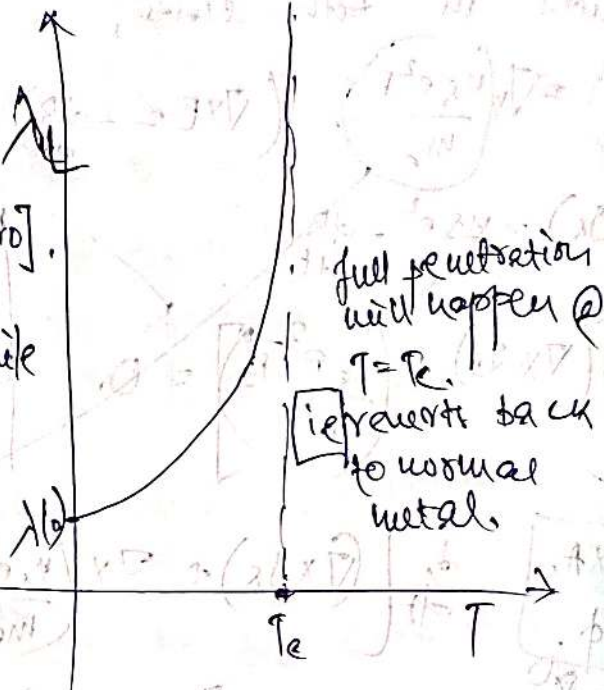 λL
ro].
ile
full penetration
will happen @
T = Tc.
ie reverts back
to normal
metal.
λ(0)
Tc
T